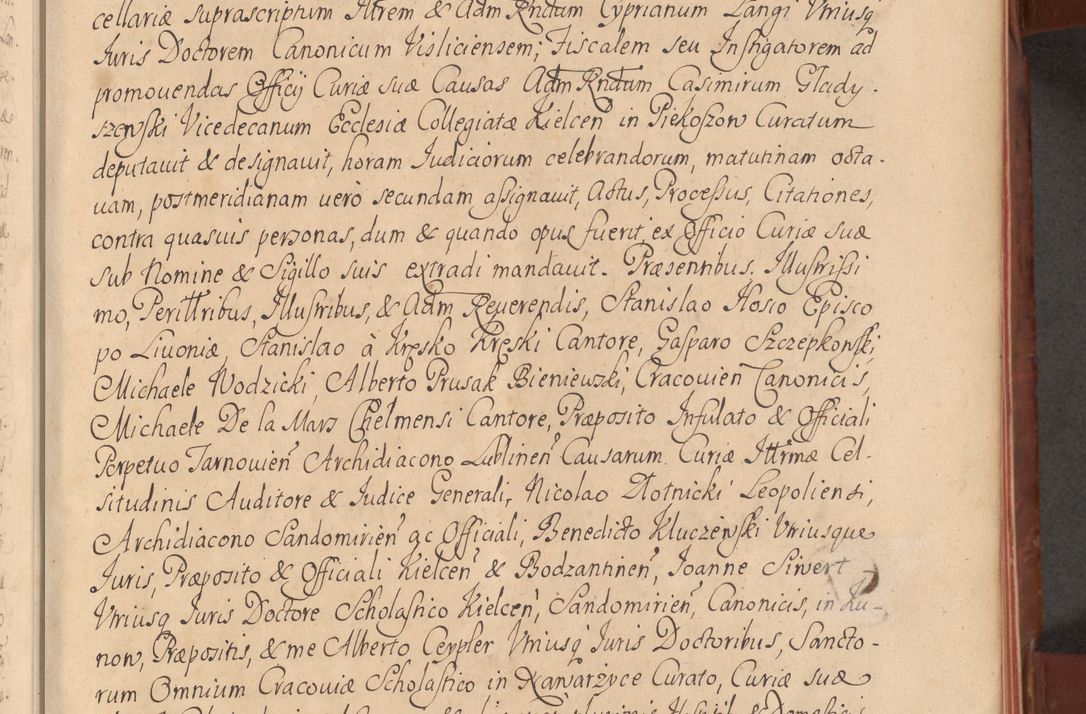 cellariæ suprascriptum Illrem & Adm Rndum Cyprianum Langi Vriusq
Juris Doctorem Canonicum Visliciensem; Fiscalem seu Instigatorem ad
promouendas Officij Curiæ suæ Causas Adm Rndum Casimirum Glady-
szewski Vicedecanum Ecclesiæ Collegiatæ Kielcen in Piekoszow Curatum
deputauit & designauit, horam Judiciorum celebrandorum, matutinam octa-
uam, postmeridianam uero secundam assignauit, Actus, Processus, Citationes,
contra quasuis personas, dum & quando opus fuerit, ex Officio Curiæ suæ
sub Nomine & Sigillo suis extradi mandauit. Præsentibus. Illustrissi
mo, Perilltribus, Illustribus, & Adm Reuerendis, Stanislao Hosio Episco
po Liuoniæ, Stanislao à Kręsko Kręski Cantore, Gasparo Szczepkowski,
Michaele Wodzicki, Alberto Prusak Bieniewski, Cracouien Canonicis,
Michaele De la Mars Chelmensi Cantore, Præposito Infulato & Officiali
Perpetuo Tarnouien Archidiacono Lublinen Causarum Curiæ Illrmæ Cel-
situdinis Auditore & Judice Generali, Nicolao Złotnicki Leopoliensi,
Archidiacono Sandomirien ac Officiali, Benedicto Kluczewski Vriusque
Juris, Præposito & Officiali Kielcen & Bodzantinen, Joanne Siwert
Vriusq Juris Doctore Scholastico Kielcen, Sandomirien, Canonicis, in Ku-
now, Præpositis, & me Alberto Ceypler Vriusq Juris Doctoribus, Sancto-
rum Omnium Cracouiæ Scholastico in Nawarzyce Curato, Curiæ suæ